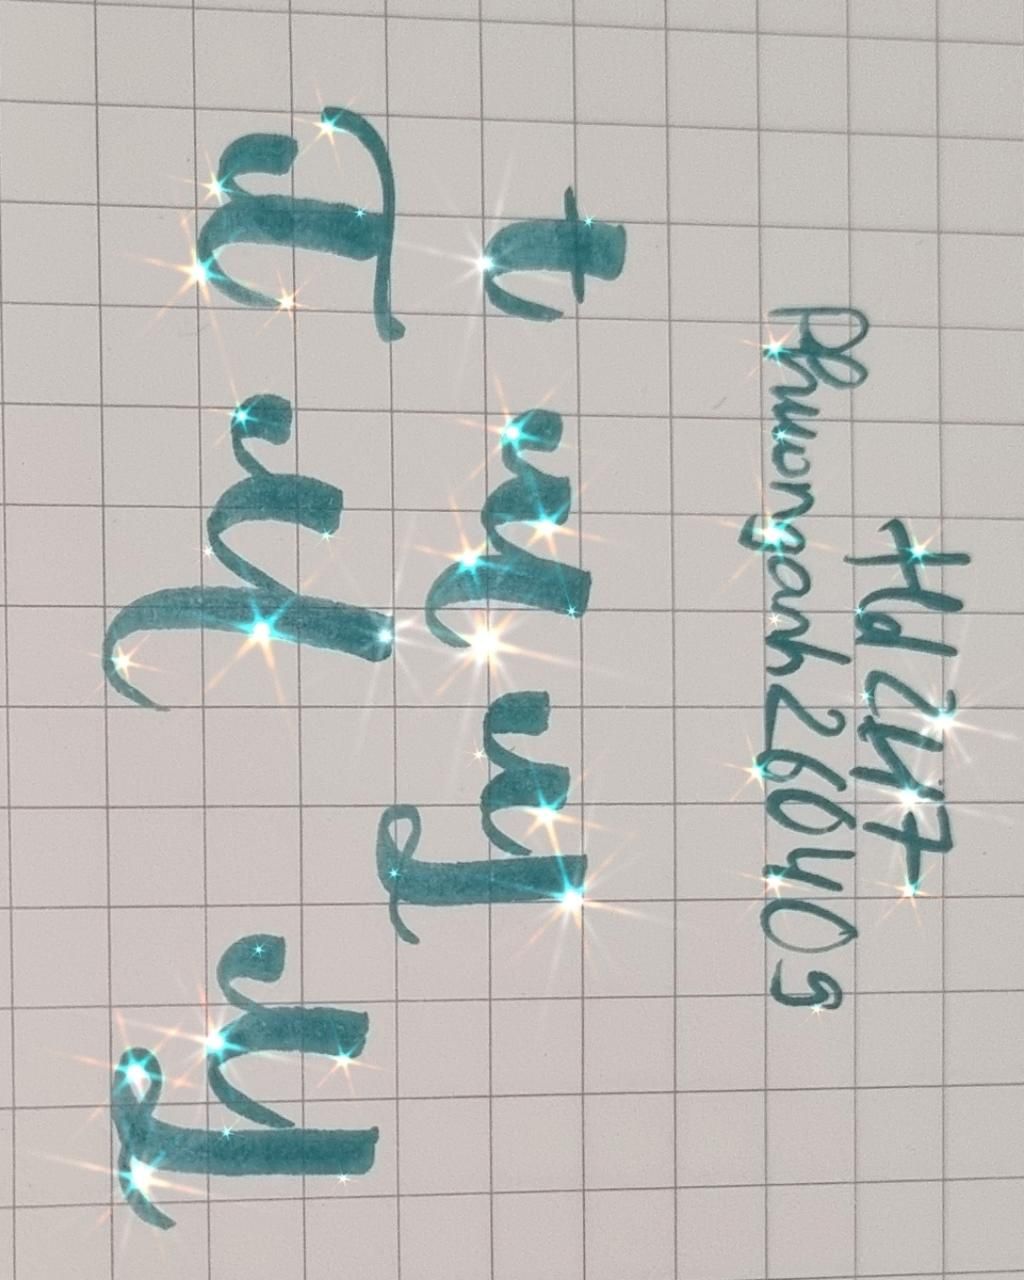 Hd 2k7
Phuonganh260409
t y y
T y y